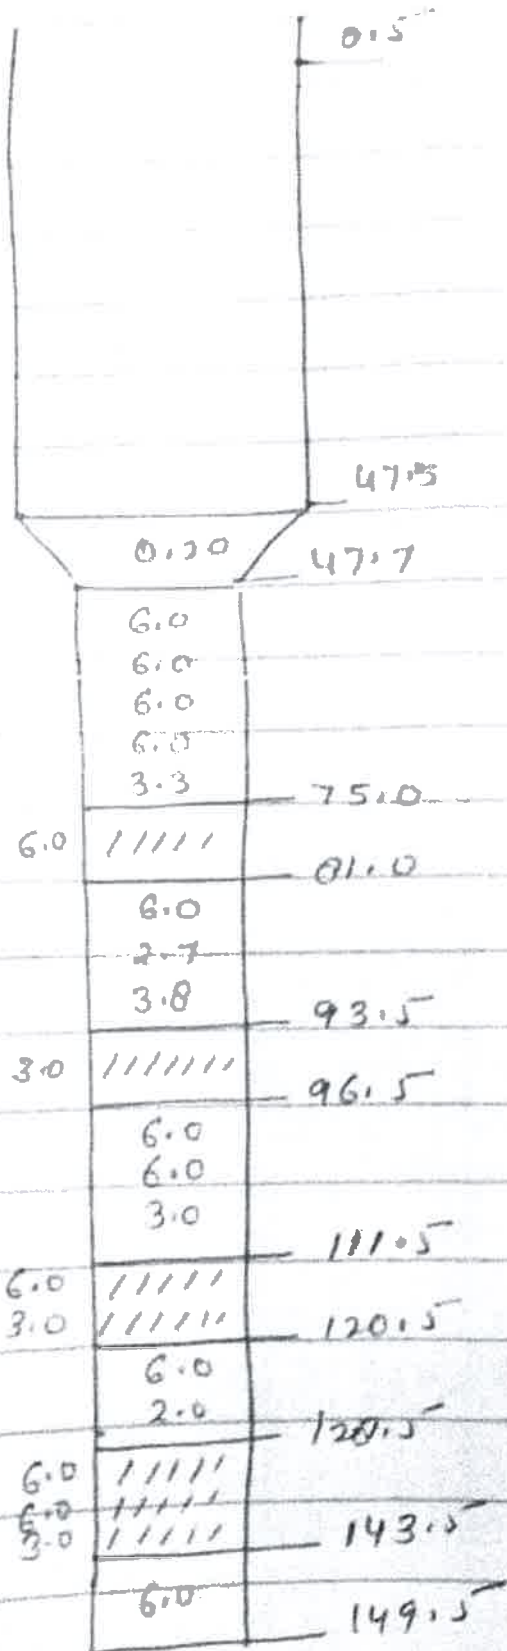 0.5
47.5
0.20 47.7
6.0
6.0
6.0
6.0
3.3
75.0
6.0 /////
81.0
6.0
2.7
3.8
93.5
3.0 ///////
96.5
6.0
6.0
3.0
111.5
6.0 /////
3.0 //////
120.5
6.0
2.0
128.5
6.0 /////
6.0 /////
3.0 /////
143.5
6.0
149.5